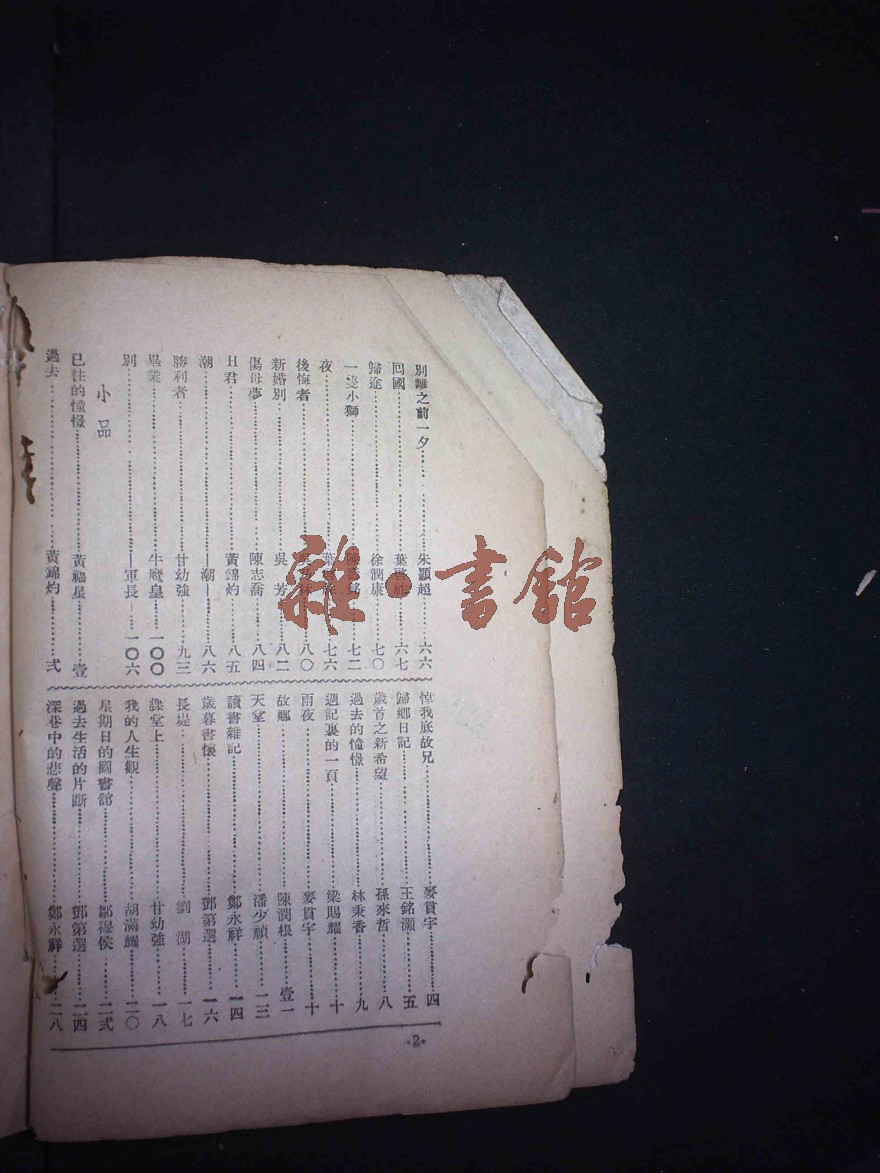 別離之前一夕……朱顯超……六六
回國……葉啓祚……六七
歸途……徐潤康……七〇
一隻小獅……七二
夜……七六
後悔者……八〇
新婚別……吳　芳……八二
傷母夢……陳志喬……八四
H君……黃錦灼……八五
潮……潮……八六
勝利者……甘幼強……九三
畢業……牛魔皇……一〇〇
別……軍長……一〇六
小品
已往的憧憬……黃福星……壹
過去……黃錦灼……弍
悼我底故兄……麥貫宇……四
歸鄉日記……王銘灝……五
歲首之新希望……孫來哲……八
過去的憧憬……林秉香……九
週記裏的一頁……梁賜耀……十
雨夜……麥貫宇……十
故鄉……陳潤根……壹一
天堂……潘少禎……一三
讀書雜記……鄭永祥……一四
歲暮書懷……鄧第選……一六
長堤……劉　湖……一七
課堂上……甘幼強……一八
我的人生觀……胡滿耀……二〇
星期日的圖書舘……鄒穆侯……二弍
過去生活的片斷……鄧第選……二四
深巷中的悲聲……鄭永祥……二八
·2·
雜·書舘